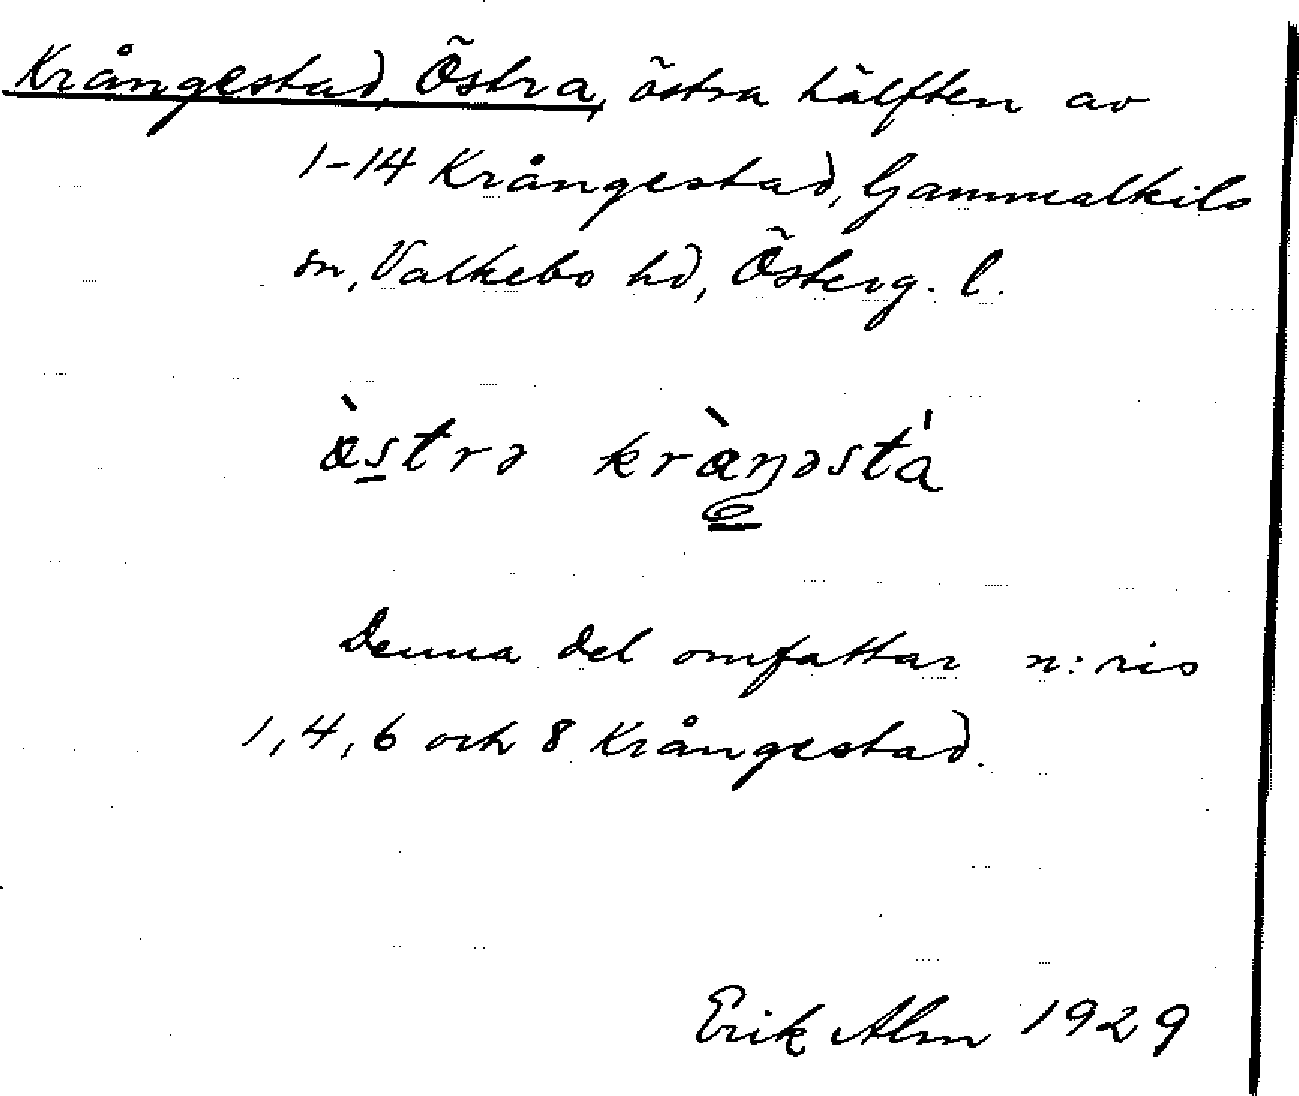 Krångestad, Östra, östra hälften av
1-14 Krångestad, Gammalkils
sn, Valkebo hd, Österg. l.
æ̀s̲trə kràŋəstá
Denna del omfattar n:ris
1, 4, 6 och 8 Krångestad.
Erik Alm 1929